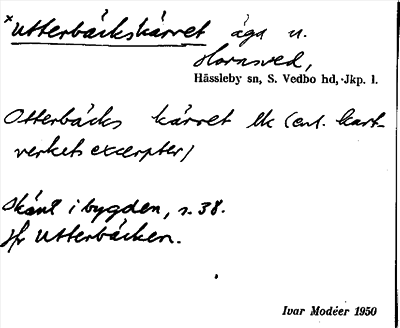 ×Utterbäckskärret äga u.
Hornsved,
Hässleby sn, S. Vedbo hd, Jkp. l.
Otterbäcks kärret lk (enl. kart-
verkets excerpter)
i bygden, s. 38.
Jfr Utterbäcken.
Ivar Modéer 1950